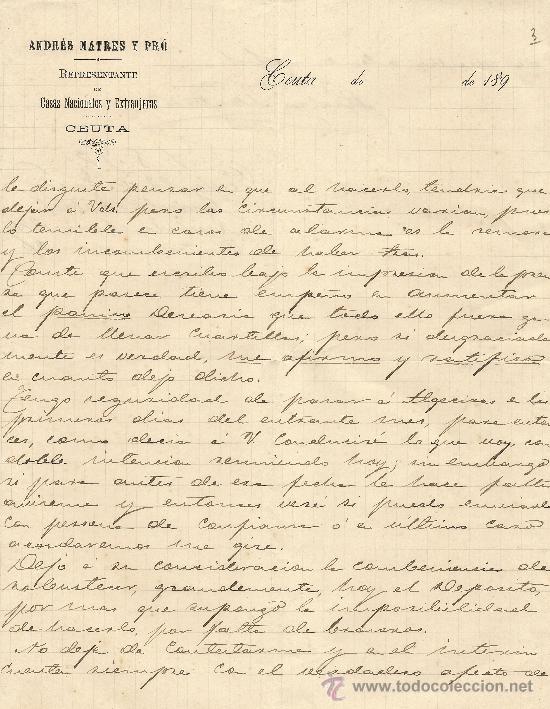 3
ANDRÉS MATRES Y PRÓ
REPRESENTANTE
DE
Casas Nacionales y Extranjeras
CEUTA
Ceuta de de 189
le disgusta pensar en que al hacerlo tendria que
dejar á Vds. pero las circunstancias varian, pues
lo temible en casos de alarma es la
y los de haber
Conste que escribo bajo la impresion de la pren
sa que parece tiene empeño en aumentar
el panico Desearia que todo ello fuera ga
na de llenar cuartillas; pero si desgraciada
mente es verdad, me afirmo y ratifico
en cuanto dejo dicho.
Tengo seguridad de pasar á Algeciras en los
primeros dias del entrante mes, para enton
ces, como decia á V. Conduciré lo que voy con
doble intencia reuniendo hoy; sin embargo
si para antes de esa fecha le hace falta
aviseme y entonces veré si puedo enviarlo
con persona de confianza ó en ultimo caso
acordaremos me gire.
Dejo á su consideracion la combeniencia de
, grandemente, hoy el Deposito,
por mas que supongo la imposibilidad
de hacerlo, por falta de
No deje de Contestarme y en el interin
cuente siempre con el verdadero afecto de
www.todocoleccion.net